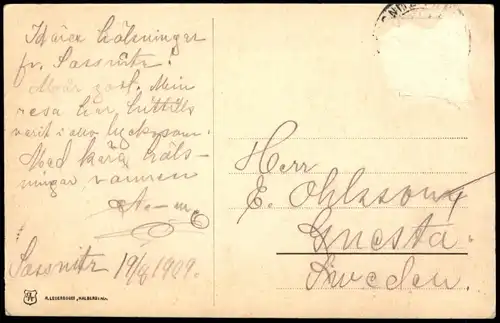 Kära hälsningar
fr. Sassnitz!
Mår godt. Min
resa har hittills
varit i allo lyckosam.
Med kära häls-
ningar vännen
Sassnitz 19/8 1909.
Herr
E. Ohlsson
Gnesta
Sweden.